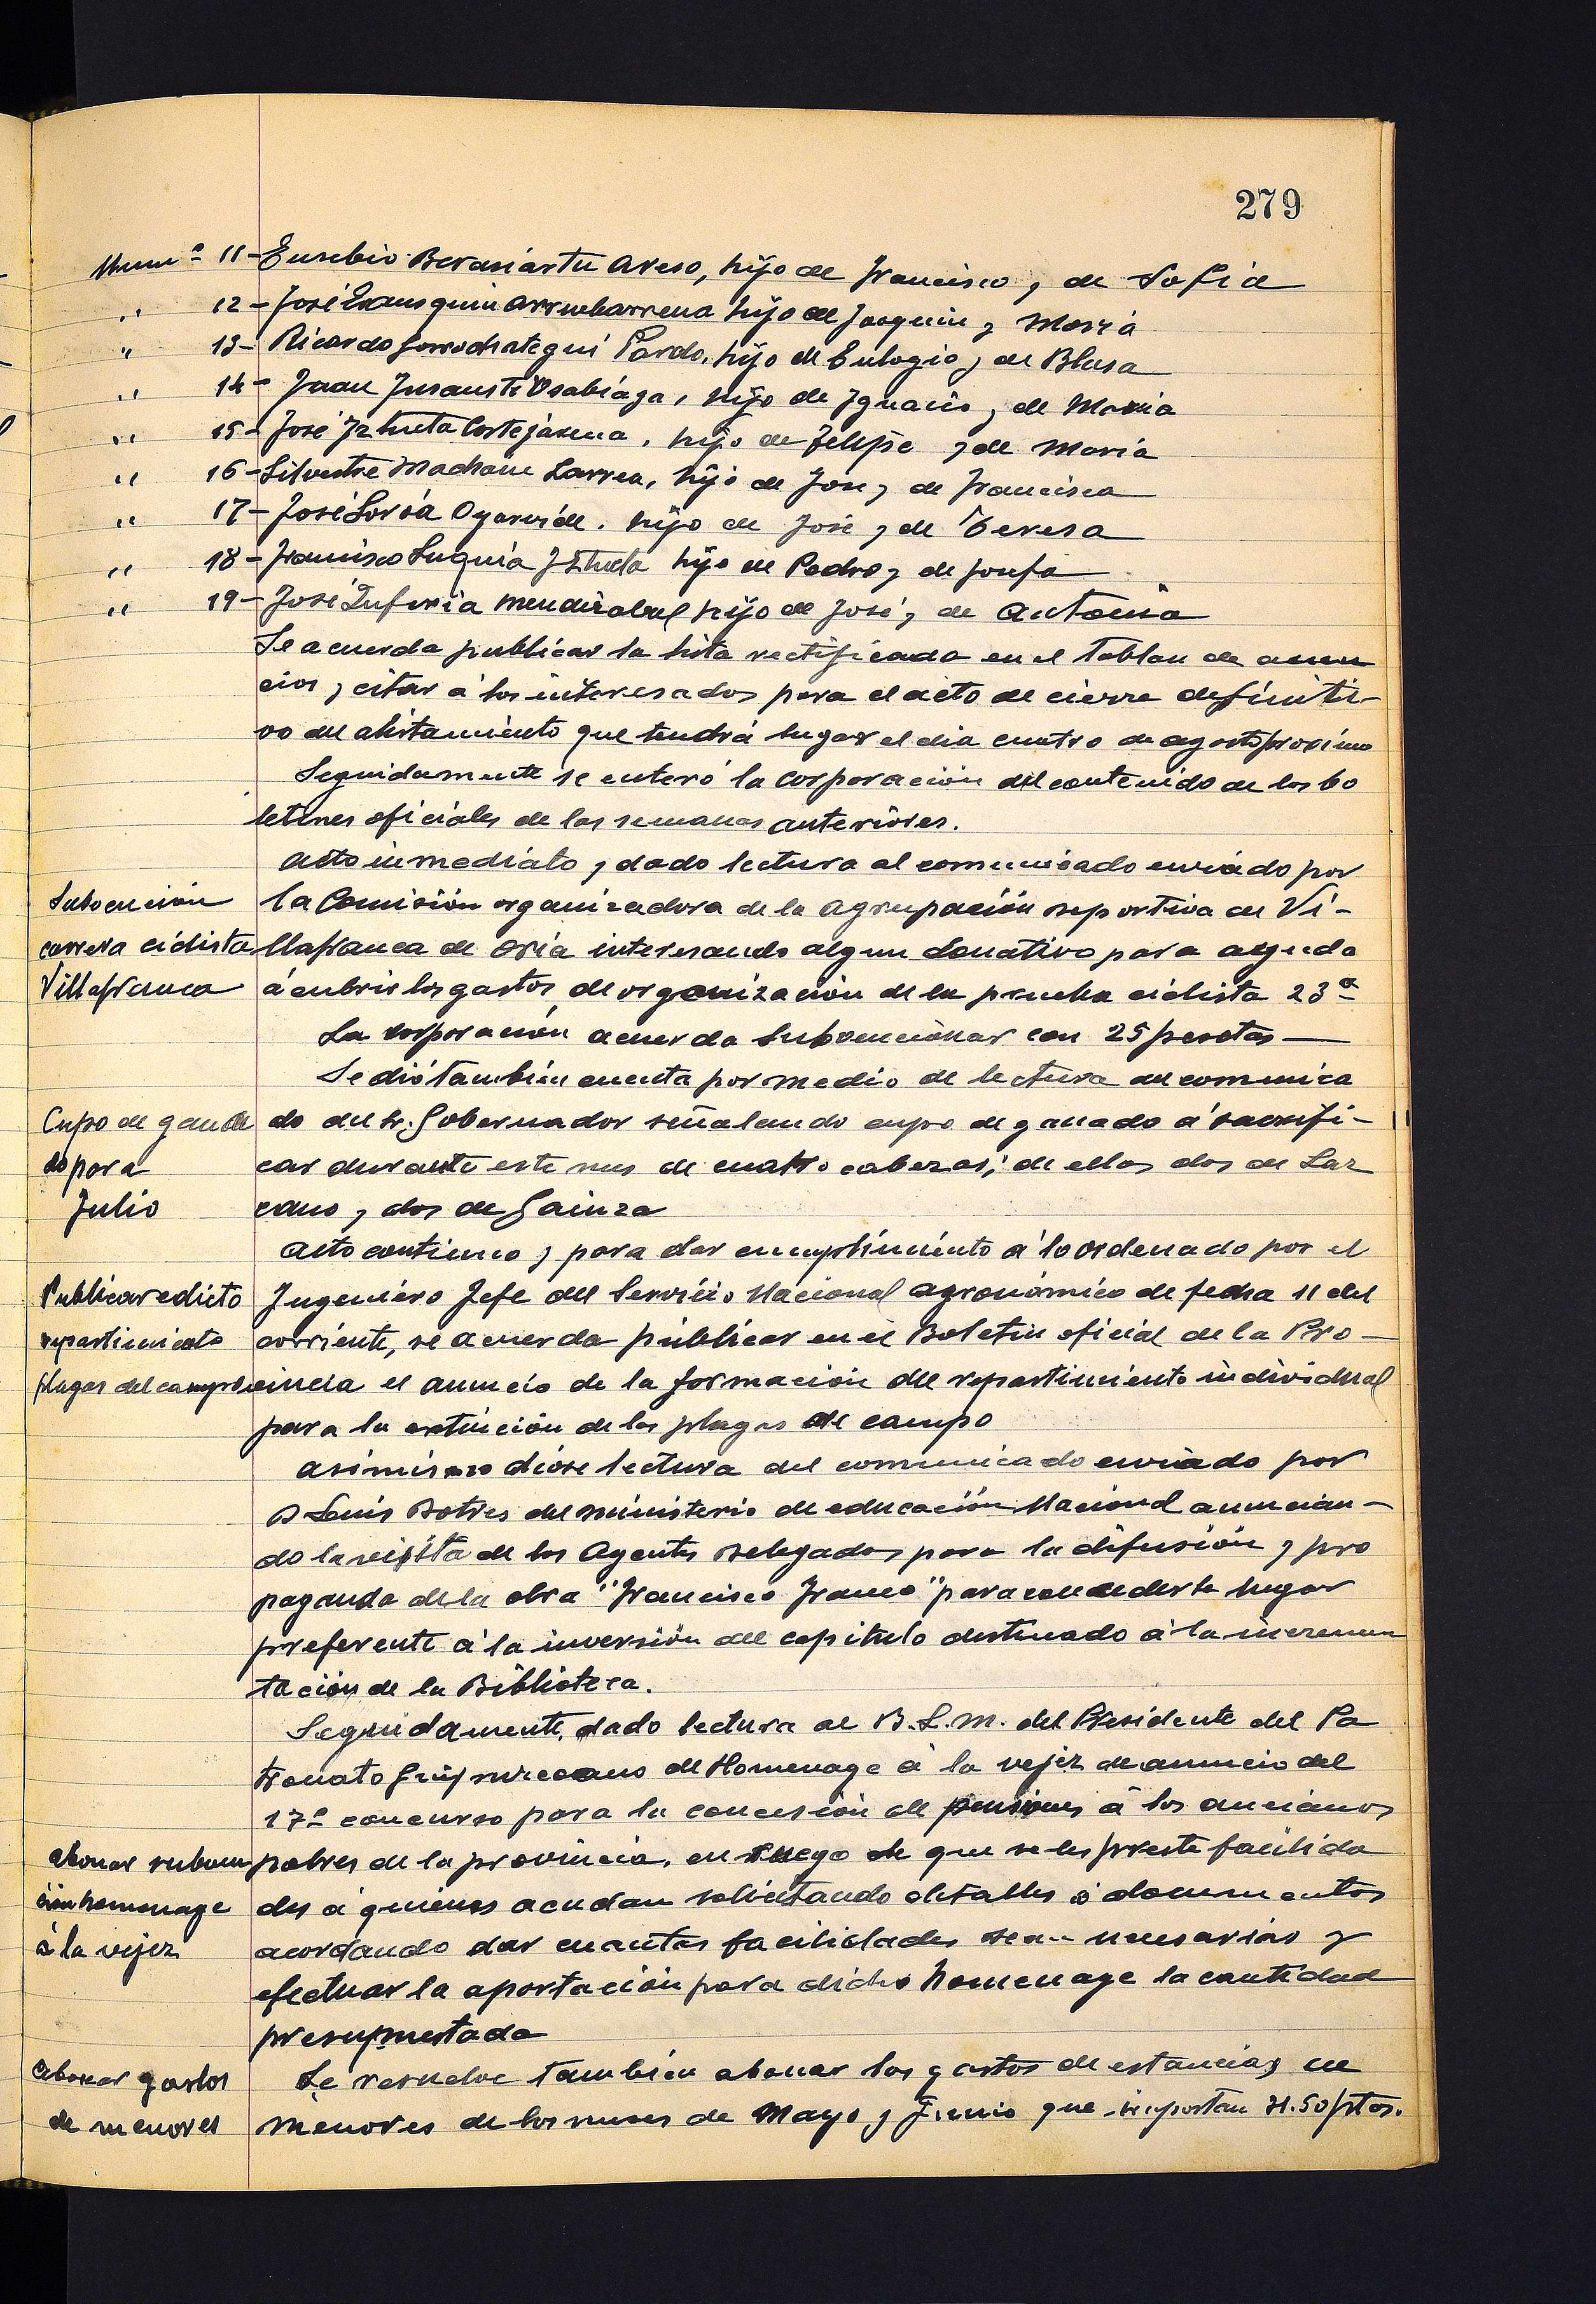 279
Num º 11 - Eusebio Berasiartu Areso, hijo de Francisco y de Sofia
" 12 - José Exausquin Arruebarrena hijo de Joaquin y Maria
" 13 - Ricardo Gorrochategui Pardo, hijo de Eulogio y de Blasa
" 14 - Juan Insausti Osabiaga, hijo de Ignacio y de Maria
" 15 - José Iztueta Cortejarena, hijo de Felipe y de Maria
" 16 - Silvestre Machain Larrea, hijo de Jose y de Francisca
" 17 - José Soroa Oyarvide, hijo de José y de Teresa
" 18 - Francisco Suquia Iztueta hijo de Pedro y de Josefa
" 19 - José Zuferia Mendizabal hijo de José y de Antonia
Se acuerda publicar la lista rectificada en el Tablon de anun
cios y citar á los interesados para el acto de cierre definiti-
vo del alistamiento que tendrá lugar el dia cuatro de agosto proximo
Seguidamente se enteró la Corporación del contenido de los bo
letines oficiales de las semanas anteriores.
Acto inmediato y dado lectura al comunicado enviado por
Subvención la Comisión organizadora de la Agrupación deportiva de Vi-
carrera ciclista llafranca de Oria interesando algun donativo para ayuda
Villafranca á cubrir los gastos de organización de la prueba ciclista 23ª
La corporación acuerda subvencionar con 25 pesetas
Se dió tambien cuenta por medio de lectura del comunica
Cupo de gana do del Sr. Gobernador señalando cupo de ganado á sacrifi-
do para car durante este mes de cuatro cabezas; de ellas dos de Laz
Julio cano y dos de Gainza
Acto continuo y para dar cumplimiento á lo ordenado por el
Publicar edicto Ingeniero Jefe del Servicio Nacional agronómico de fecha 11 del
repartimiento corriente, se acuerda publicar en el Boletin oficial de la Pro-
plagas del campo vincia el anuncio de la formación del repartimiento individual
para la extinción de las plagas del campo
Asimismo diose lectura del comunicado enviado por
D Luis Botres del ministerio de educación Nacional anuncian-
do la visita de los Agentes Delegados para la difusión y pro
paganda de la obra "Francisco Franco" para concederle lugar
preferente á la inversión del capitulo destinado á la incremen
tación de la Biblioteca.
Seguidamente, dado lectura al B.L.M. del Presidente del Pa
tronato Guipuzcoano del Homenage á la vejez de anuncio del
17º concurso para la concesión de pensiones á los ancianos
abonar subven pobres de la provincia, en ruego de que se les preste facilida
ción homenage des á quienes acudan solicitando detalles ó documentos
á la vejez acordando dar cuantas facilidades sean necesarias y
efectuar la aportación para dicho homenage la cantidad
presupuestada
Abonar gastos Se resuelve también abonar los gastos de estancias de
de menores menores de los meses de Mayo y Junio que importan 31.50 ptas.